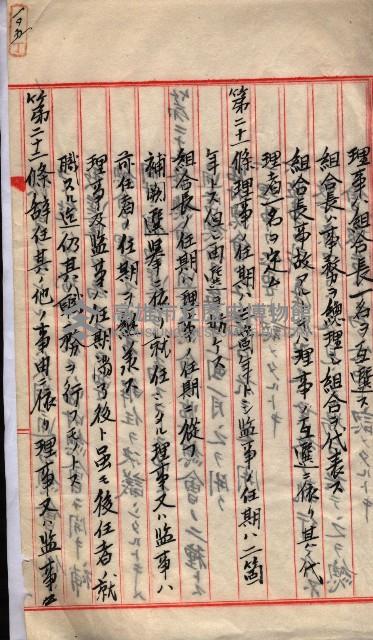 理事ハ組合長一名ヲ互選ス
組合長ハ事務ヲ總理シ組合ヲ代表ス
組合長事故アルトキハ理事ノ互選ニ依リ其ノ代
理者一名ヲ定ム
第二十一條理事ノ任期ハ三箇年トシ監事ノ任期ハ二箇
年トス但シ再選ヲ妨ケス
組合長ノ任期ハ理事ノ任期ニ從フ
補闕選擧ニ依リ就任シタル理事又ハ監事ハ
前任者ノ任期ヲ繼承ス
理事及監事ハ任期滿了後ト雖モ後任者ノ就
職スル迄仍其ノ職務ヲ行フモノトス
第二十二條辭任其ノ他ノ事由ニ依リ理事又ハ監事ニ